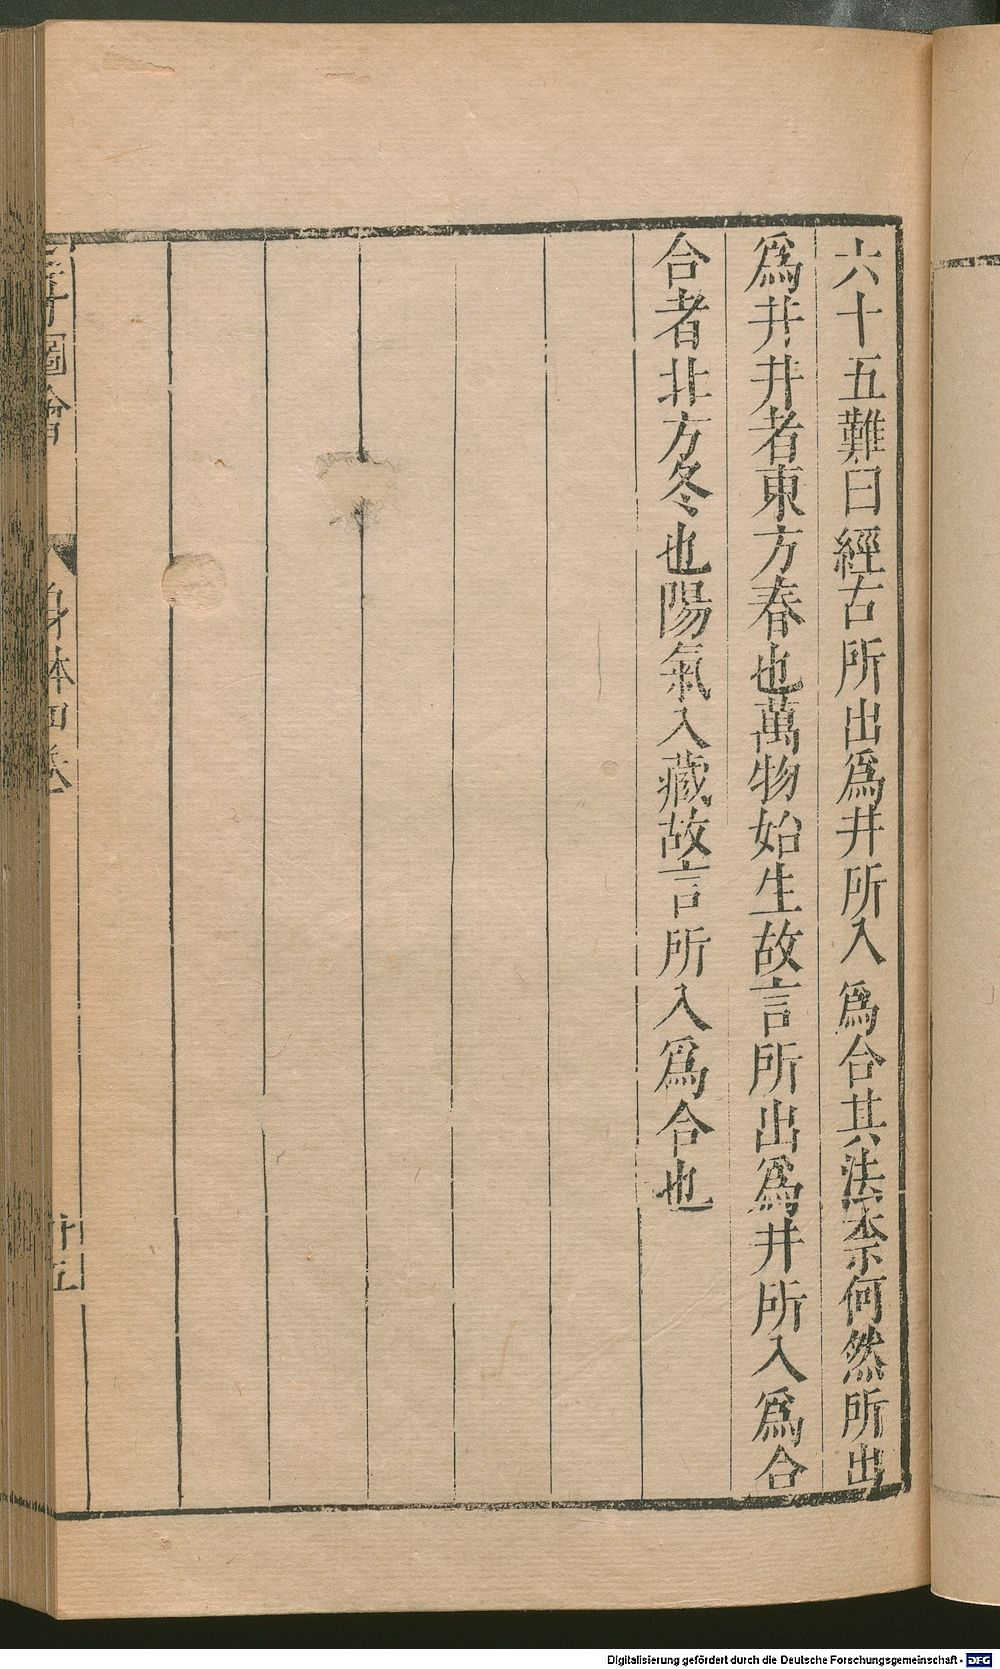 六十五難曰經古所出爲井所入爲合其法柰何然所出
爲井井者東方春也萬物始生故言所出爲井所入爲合
合者北方冬也陽氣入藏故言所入爲合也
圖會 身体四卷 十五
Digitalisierung gefördert durch die Deutsche Forschungsgemeinschaft - DFG